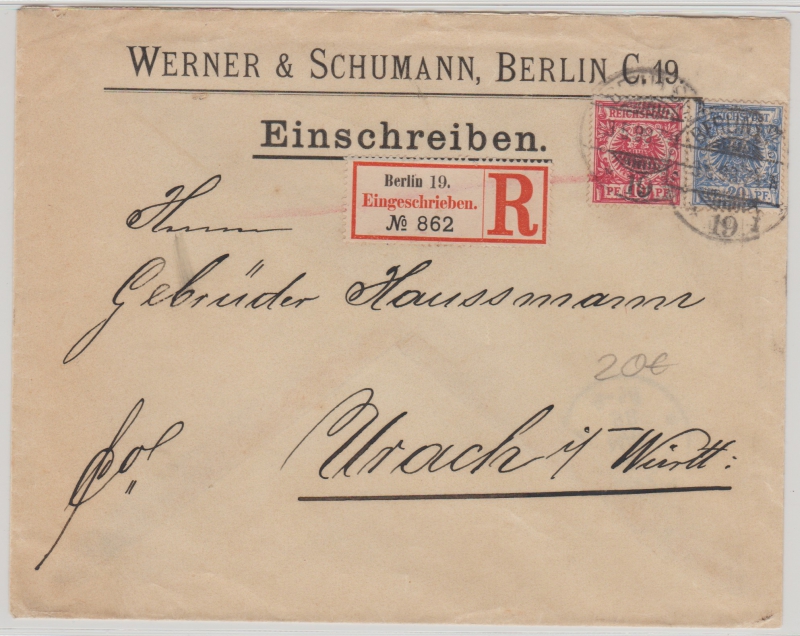 WERNER & SCHUMANN, BERLIN C. 19.
Einschreiben.
REICHSPOST
10
PF. PF.
20
PF.
19
Berlin 19.
Eingeschrieben.
№ 862
R
Herrn
Gebrüder Haussmann
20€
Urach i/ Württ: